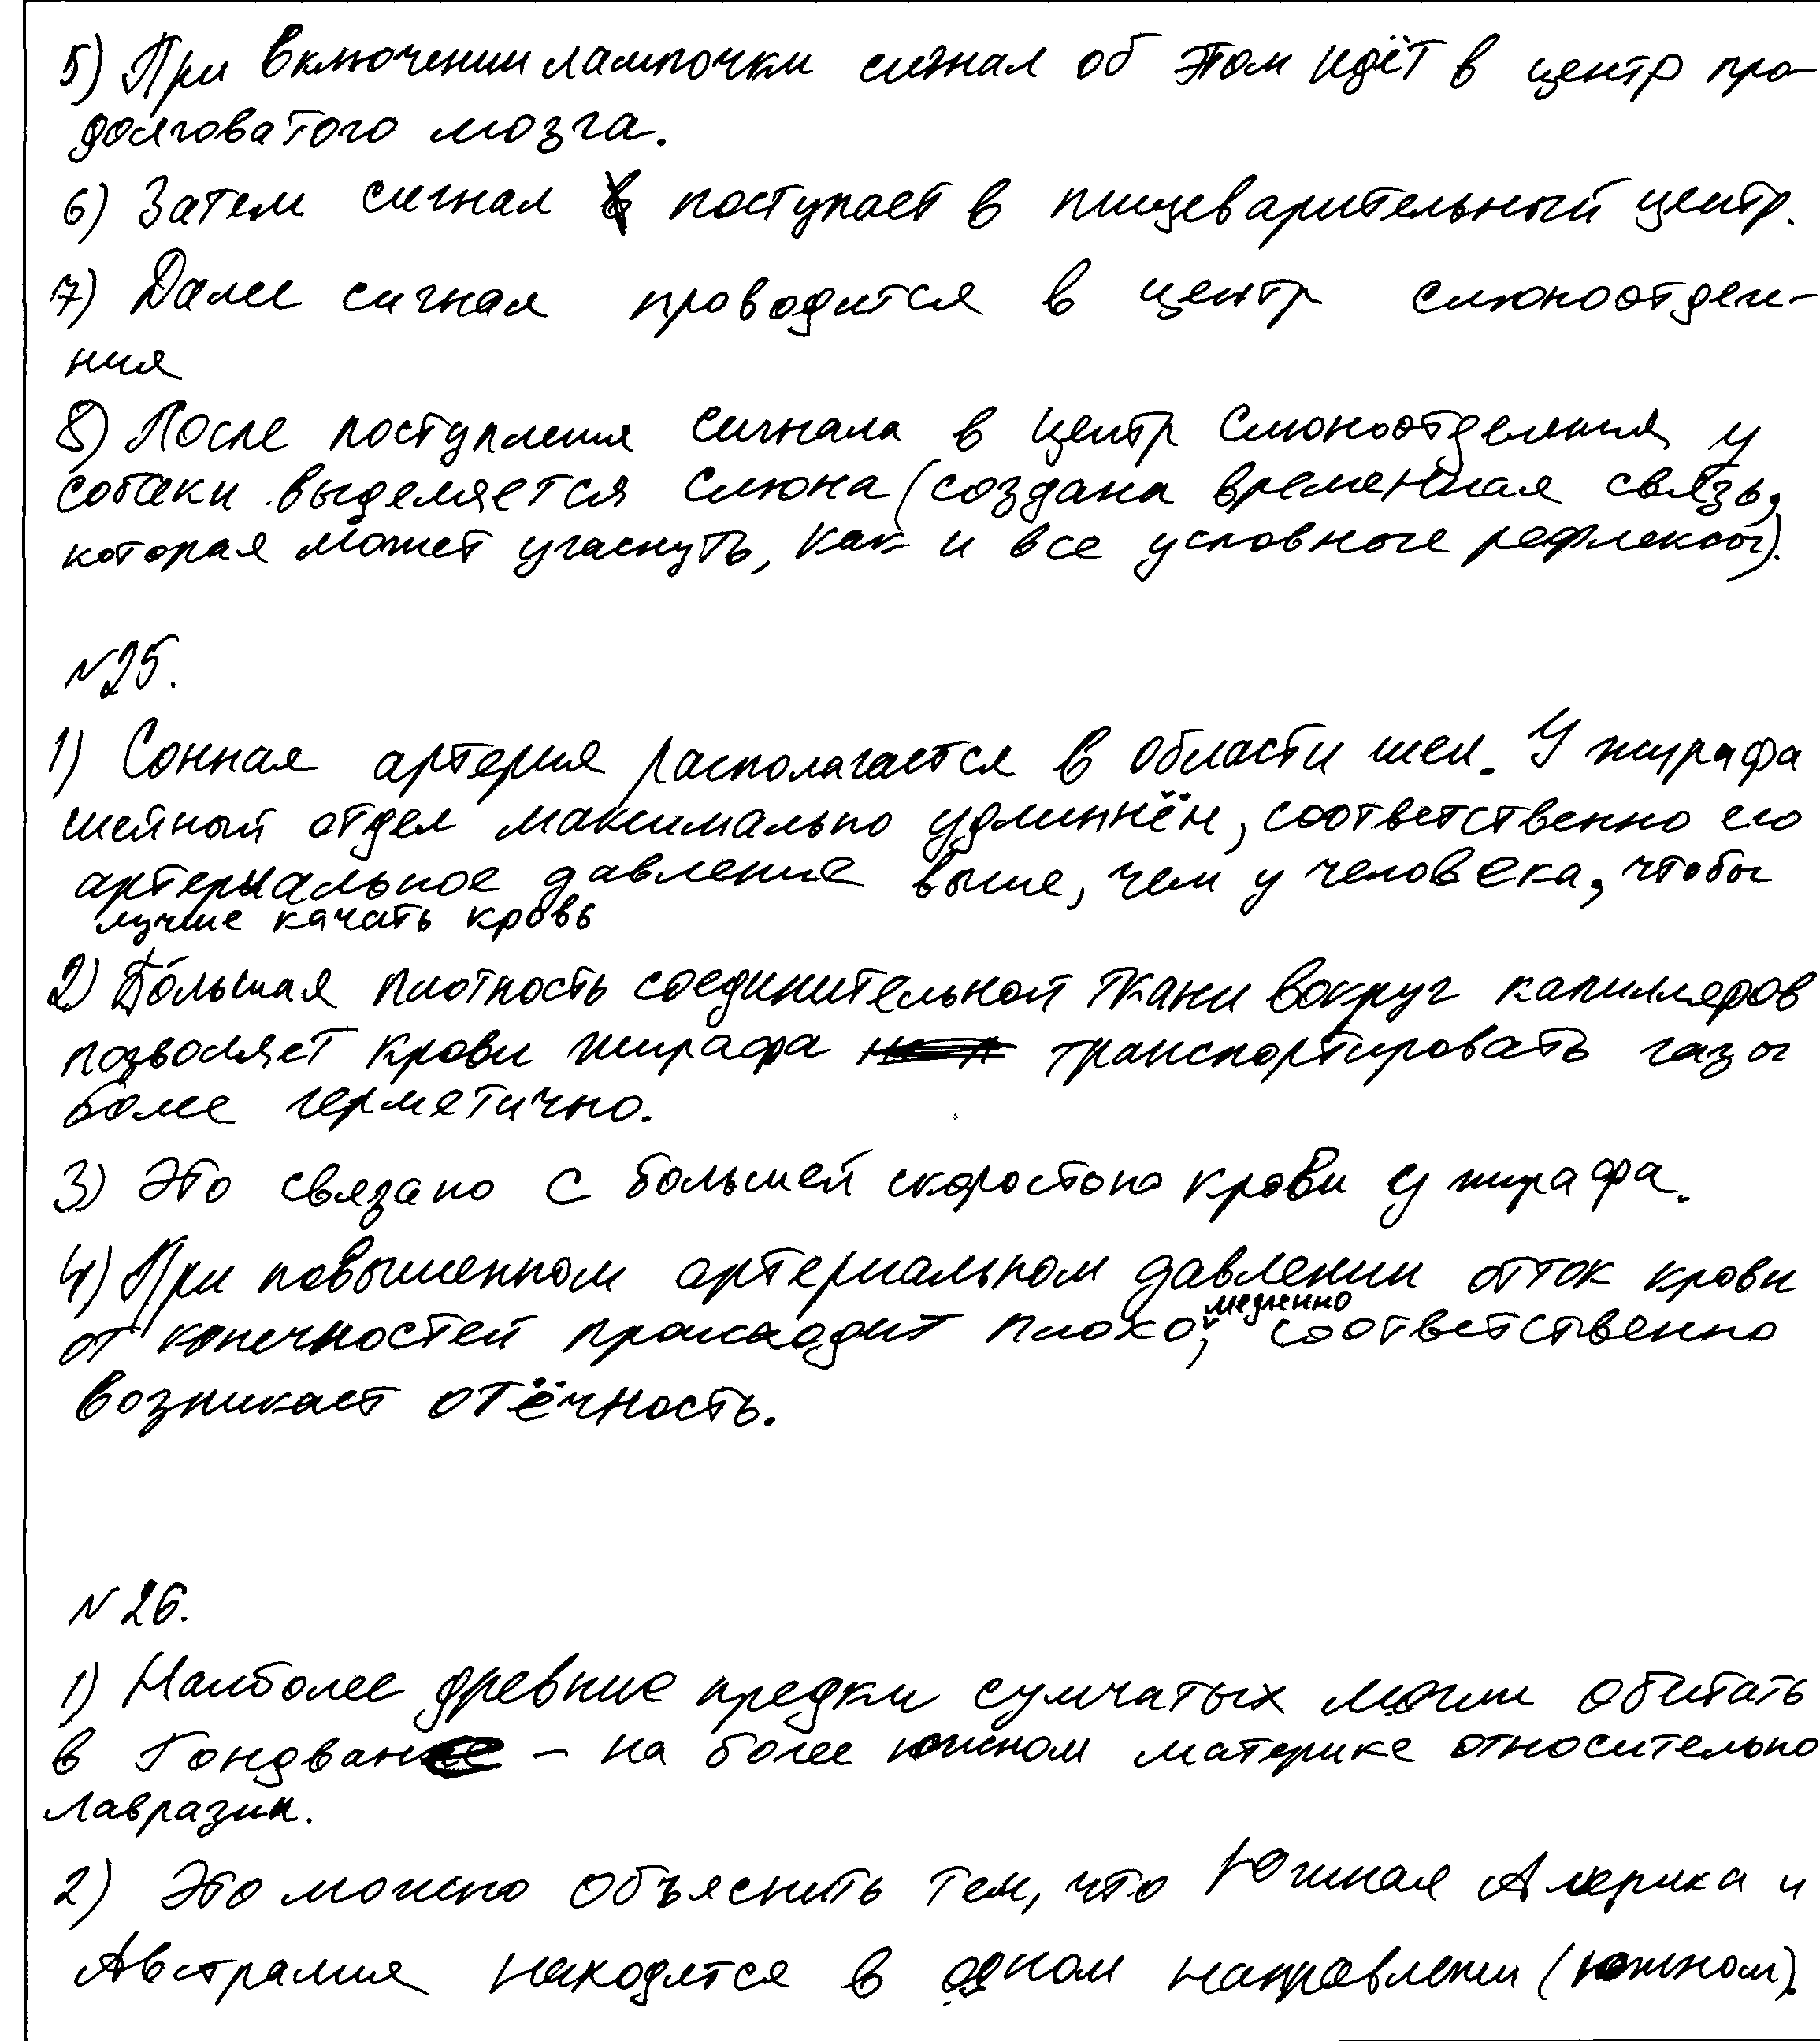 5) При включении лампочки сигнал об этом идёт в центр про-
долговатого мозга.
6) Затем сигнал поступает в пищеварительный центр.
7) Далее сигнал проводится в центр слюноотделе-
ния
8) После поступления сигнала в центр слюноотделения у
собаки выделяется слюна (создана временная связь,
которая может угаснуть, как и все условные рефлексы).
№25.
1) Сонная артерия располагается в области шеи. У жирафа
шейный отдел максимально удлиннён, соответственно его
артериальное давление выше, чем у человека, чтобы
лучше качать кровь
2) Бо́льшая плотность соединительной ткани вокруг капилляров
позволяет крови жирафа транспортировать газы
более герметично.
3) Это связано с большей скоростью крови у жирафа.
4) При повышенном артериальном давлении отток крови
от конечностей происходит плохо, медленно соответственно
возникает отёчность.
№ 26.
1) Наиболее древние предки сумчатых могли обитать
в Гондване – на более южном материке относительно
Лавразии.
2) Это можно объяснить тем, что Южная Америка и
Австралия находятся в одном направлении (южном).